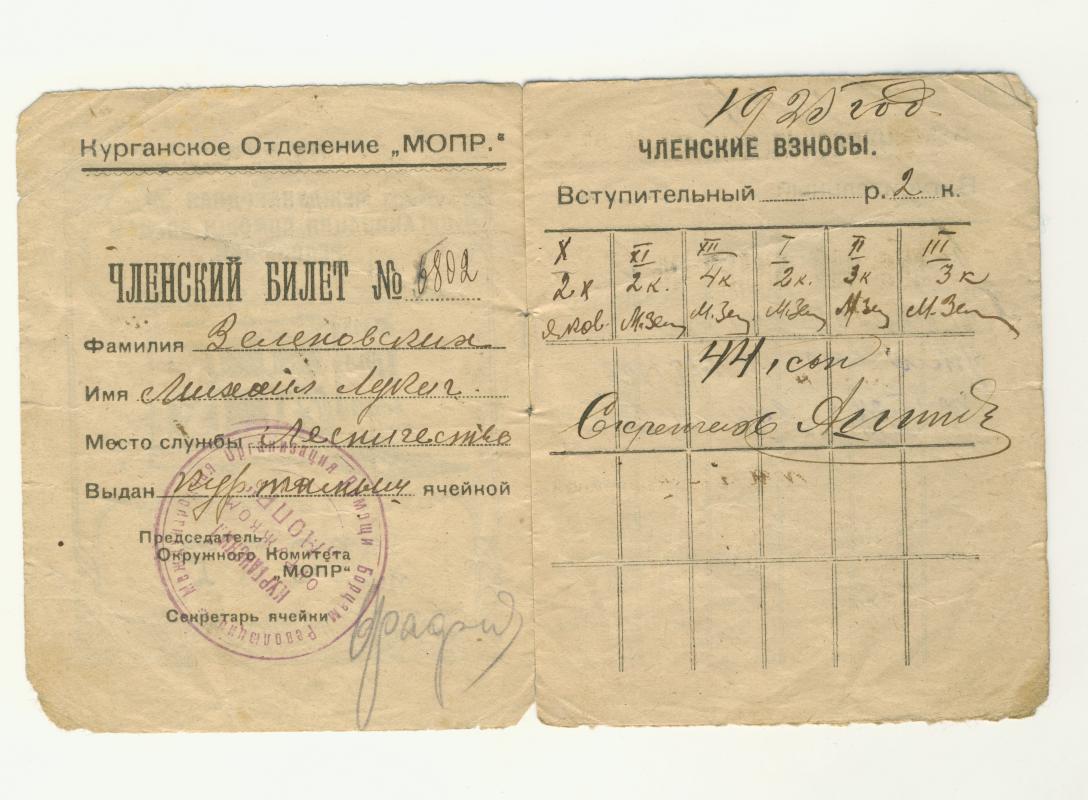 Курганское Отделение „МОПР.“
ЧЛЕНСКИЙ БИЛЕТ № 6802
Фамилия Зеленовских
Имя Михаил Лукич
Место службы Лесничество
Выдан ячейкой
Председатель
Окружного Комитета
„МОПР“
Секретарь ячейки
Организация Помощи Борцам Революции
МОПР
1925 год.
ЧЛЕНСКИЕ ВЗНОСЫ.
Вступительный р. 2 к.
X XI XII I II III
2 к 2 к. 4 к 2 к. 3 к 3 к
Яков. М.Зел М.Зел М.Зел М.Зел М.Зел
44